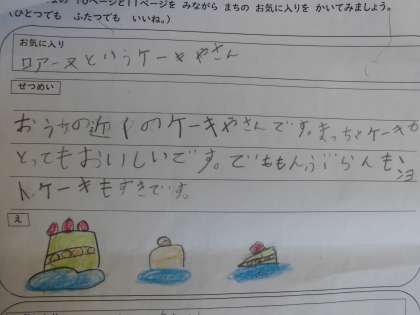 10ページと11ページを みながら まちの お気に入りを かいてみましょう。
(ひとつでも ふたつでも いいね。)
お気に入り
ロアーヌというケーキやさん
せつめい
おうちの近くのケーキやさんです。まっちゃケーキが
とってもおいしいです。でももんぶらんも
トケーキもすきです。
え